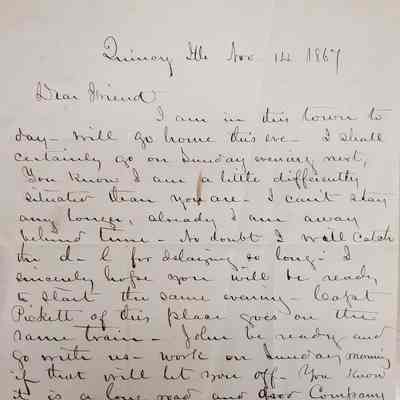 Quincy Ills Nov. 14 1867
Dear Friend
I am in this town to
day - will go home this eve - I shall
certainly go on Sunday evening next,
You know I am a little differently
situated than you are - I cant stay
any longer, already I am away
behind time - No doubt I will catch
the d-l for delaying so long - I
sincerely hope you will be ready
to start the same evening - Capt
Pickett of this place goes on the
same train - John be ready and
go with us - work on Sunday morning
if that will let you off - You know
it is a long road and good Company